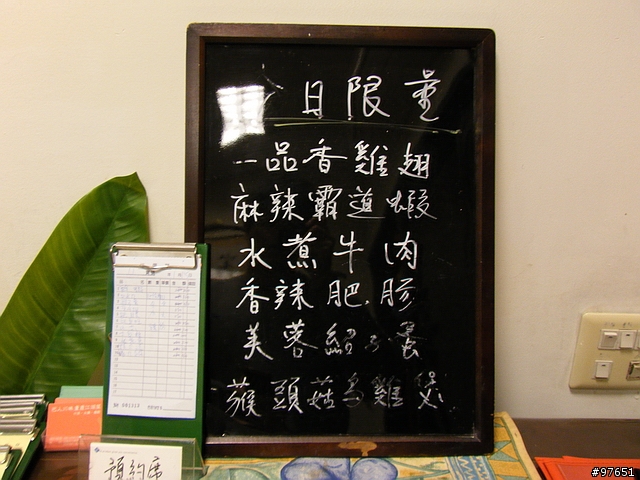 今日限量
一品香雞翅
麻辣霸道蝦
水煮牛肉
香辣肥腸
芙蓉
猴頭菇烏雞煲
預約席
#97651